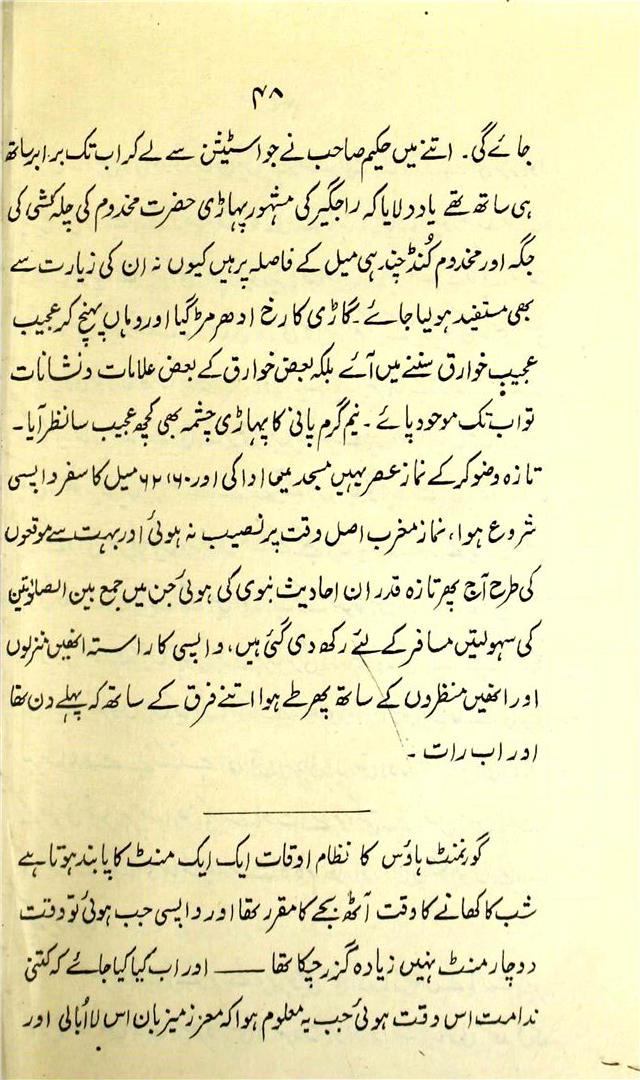 ۴۸
جائے گی۔ اتنے میں حکیم صاحب نے جو اسٹیشن سے لے کر اب تک برابر ساتھ
ہی ساتھ تھے یاد دلایا کہ راجگیر کی مشہور پہاڑی حضرت مخدوم کی چلہ کشی کی
جگہ اور مخدوم کُنڈ چند ہی میل کے فاصلہ پر ہیں کیوں نہ ان کی زیارت سے
بھی مستفید ہو لیا جائے۔ گاڑی کا رخ ادھر مڑ گیا اور وہاں پہنچ کر عجیب
عجیب خوارق سننے میں آئے بلکہ بعض خوارق کے بعض علامات و نشانات
تو اب تک موجود پائے۔ نیم گرم پانی کا پہاڑی چشمہ بھی کچھ عجیب سا نظر آیا۔
تازہ وضو کر کے نماز عصر یہیں مسجد میں ادا کی اور ۶۰، ۶۲ میل کا سفر واپسی
شروع ہوا، نماز مغرب اصل وقت پر نصیب نہ ہوئی اور بہت سے موقعوں
کی طرح آج پھر تازہ قدر ان احادیث نبوی کی ہوئی جن میں جمع بین الصلوٰتین
کی سہولتیں مسافر کے لئے رکھ دی گئی ہیں، واپسی کا راستہ انھیں منزلوں
اور انھیں منظروں کے ساتھ پھر طے ہوا اتنے فرق کے ساتھ کہ پہلے دن تھا
اور اب رات۔
گورنمنٹ ہاؤس کا نظام اوقات ایک ایک منٹ کا پابند ہوتا ہے
شب کا کھانے کا وقت آٹھ بجے کا مقرر تھا اور واپسی جب ہوئی تو وقت
دوچار منٹ نہیں زیادہ گزر چکا تھا ــــــ اور اب کیا کیا جائے کہ کتنی
ندامت اس وقت ہوئی جب یہ معلوم ہوا کہ معزز میزبان اس لااُبالی اور